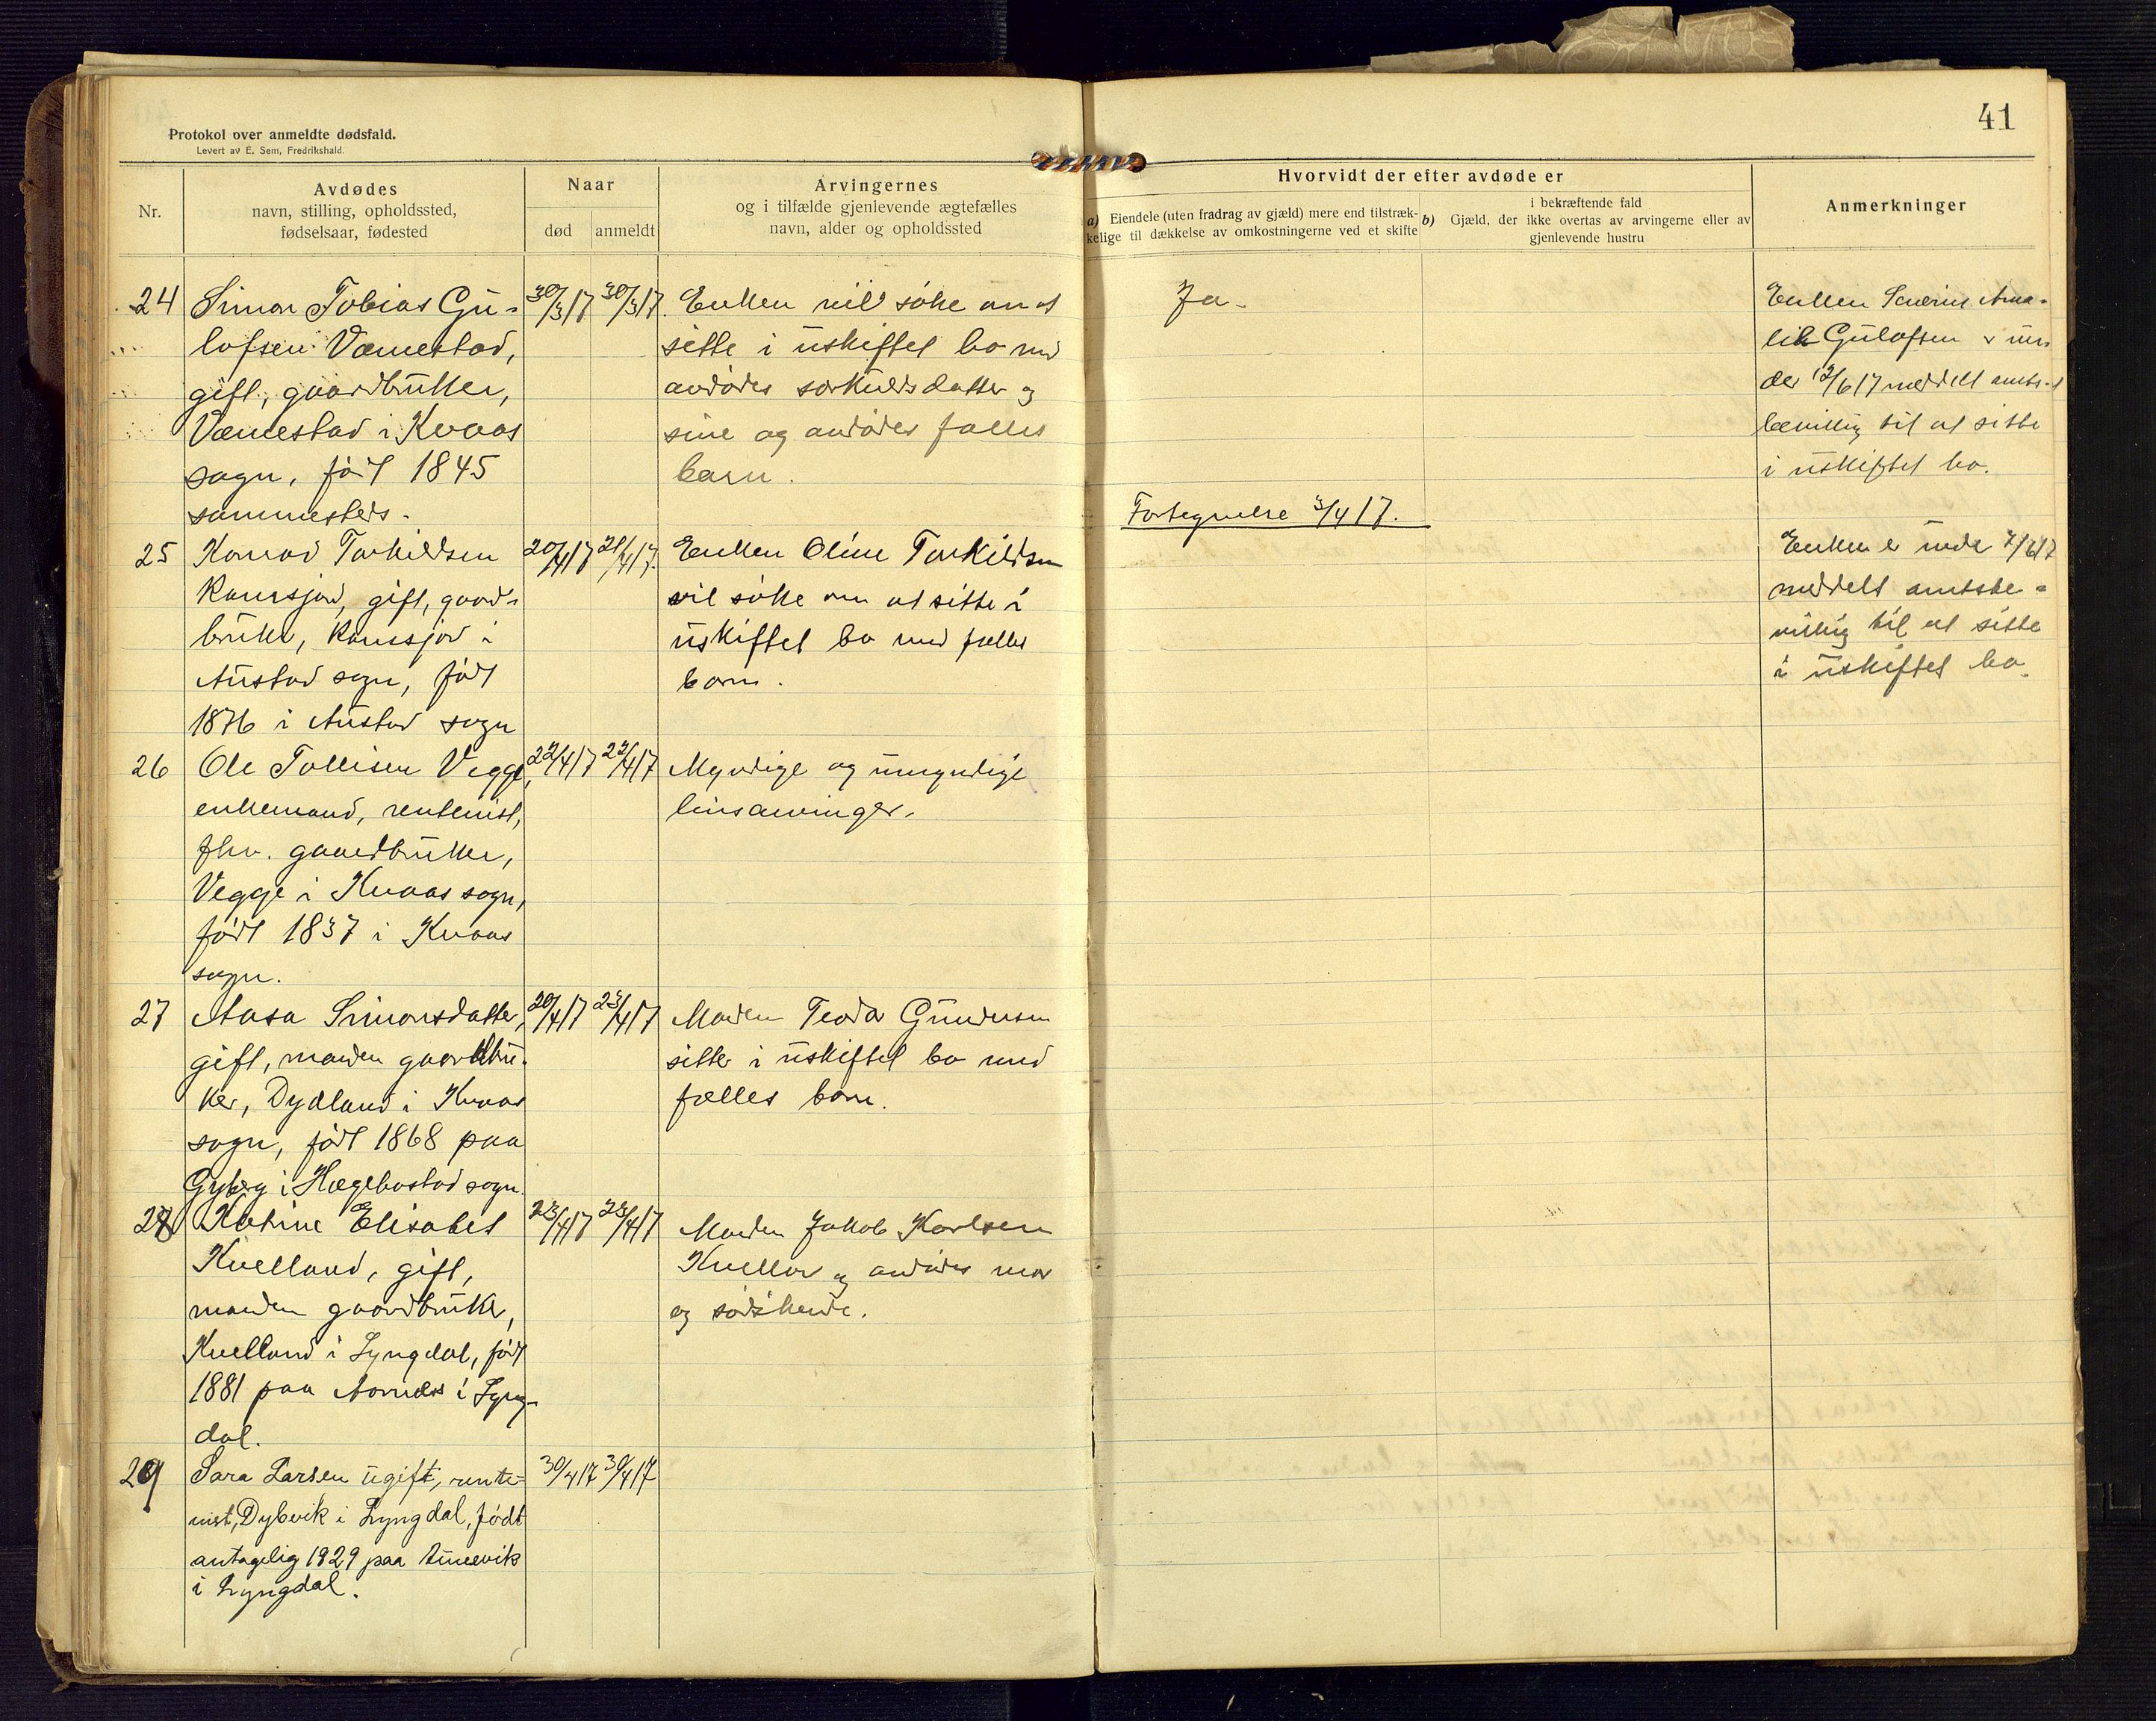 41
Protokol over anmeldte dødsfald.
Levert av E. Sem, Fredrikshald.
Nr.
Avdødes
navn, stilling, opholdssted,
fødselsaar, fødested
Naar
død
anmeldt
Arvingernes
og i tilfælde gjenlevende ægtefælles
navn, alder og opholdssted
Hvorvidt der efter avdøde er
a) Eiendele (uten fradrag av gjæld) mere end tilstræk-
kelige til dækkelse av omkostningerne ved et skifte
i bekræftende fald
b) Gjæld, der ikke overtas av arvingerne eller av
gjenlevende hustru
Anmerkninger
24
Simon Tobias Gu-
lofsen Væmestad,
gift, gaardbruker,
Væmestad i Kvaas
sogn, født 1845
sammesteds.
30/3 17
30/3 17.
Enken vil søke om at
sitte i uskiftet bo med
avdødes særkuldsdatter og
sine og avdødes fælles
barn.
Ja.
Fortegnelse 3/4 17.
Enken Severine Ama-
lie Gulofsen er un-
der 12/6 17 meddelt amts-
bevilling til at sitte
i uskiftet bo.
25
Konrad Torkildsen
gift, gaard-
bruker, i
Austad sogn, født
1876 i Austad sogn
20/4 17
21/4 17.
Enken Oline Torkildsen
vil søke om at sitte i
uskiftet bo med fælles
barn.
Enken er under 7/6 17
meddelt amtsbe-
villing til at sitte
i uskiftet bo.
26
Ole Tollisen Vegge,
enkemand, rentenist,
fhv. gaardbruker,
Vegge i Kvaas sogn,
født 1837 i Kvaas
sogn.
22/4 17
22/4 17
Myndige og umyndige
livsarvinger.
27
Aasa Simonsdatter,
gift, manden gaardbru-
ker, Dydland i Kvaas
sogn, født 1868 paa
Gyberg i Hægebostad sogn.
20/4 17
23/4 17
Manden Teodor Gundersen
sitter i uskiftet bo med
fælles barn.
28
Katrine Elisabet
Kvelland, gift,
manden gaardbruker,
Kvelland i Lyngdal, født
1881 paa Aarnes i Lyng-
dal.
23/4 17
23/4 17
Manden Jakob Karlsen
og avdødes mor
og sødskende.
29
Sara Larsen ugift, rente-
nist, Dybvik i Lyngdal, født
antagelig 1829 paa
i Lyngdal.
30/4 17
30/4 17